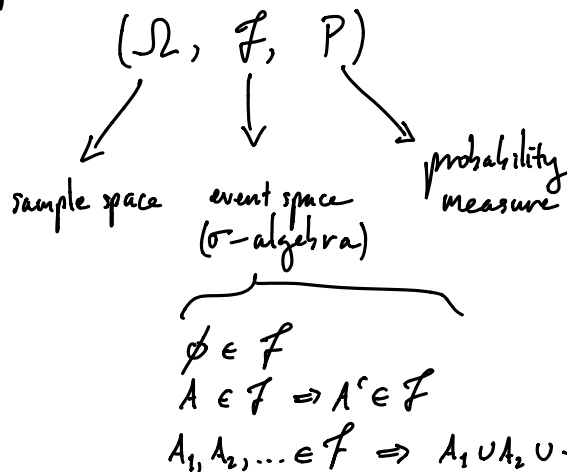 (Ω, ℱ, P)
sample space
event space
(σ-algebra)
probability
measure
∅ ∈ ℱ
A ∈ ℱ ⇒ Aᶜ ∈ ℱ
A₁, A₂, ... ∈ ℱ ⇒ A₁ ∪ A₂ ∪ .